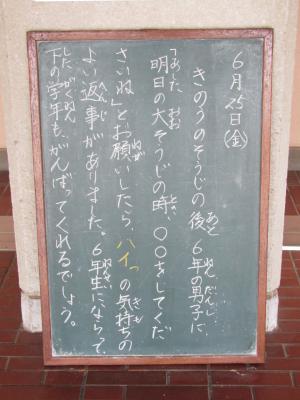 6月25日(金)
きのうのそうじの後、6年の男子に
「明日の大そうじの時、〇〇をしてくだ
さいね」とお願いしたら、ハイっの気持ちの
よい返事がありました。6年生にならって、
下の学年も、がんばってくれるでしょう。